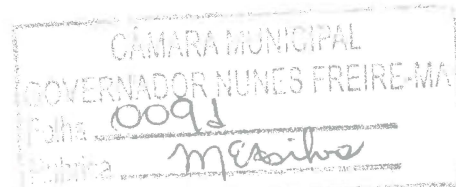 CÂMARA MUNICIPAL
GOVERNADOR NUNES FREIRE-MA
Folha 0091
Rubrica